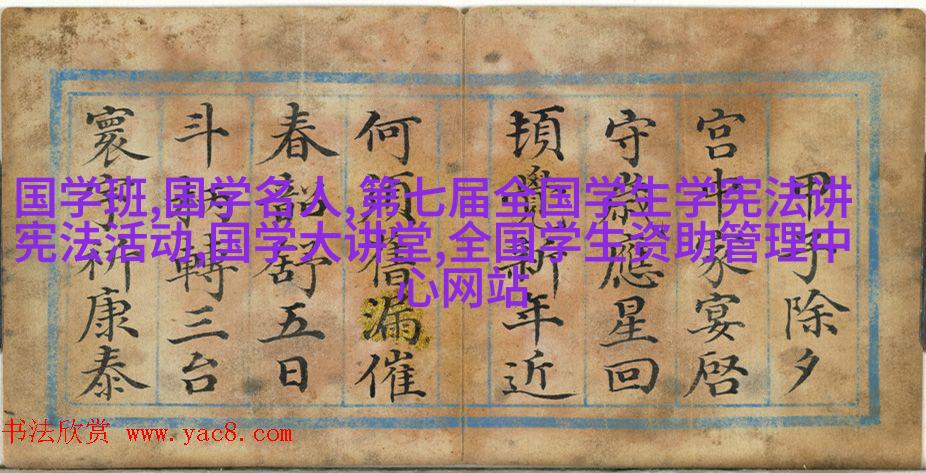 国学班,国学名人,第七届全国学生学宪法讲
宪法活动,国学大讲堂,全国学生资助管理中
心网站
甲子除夕
宫中家宴啓
守歲應星回
頓覺新年近
何須舊漏催
春韶舒五日
斗柄轉三台
寰宇祈康泰
书法欣赏 www.yac8.com